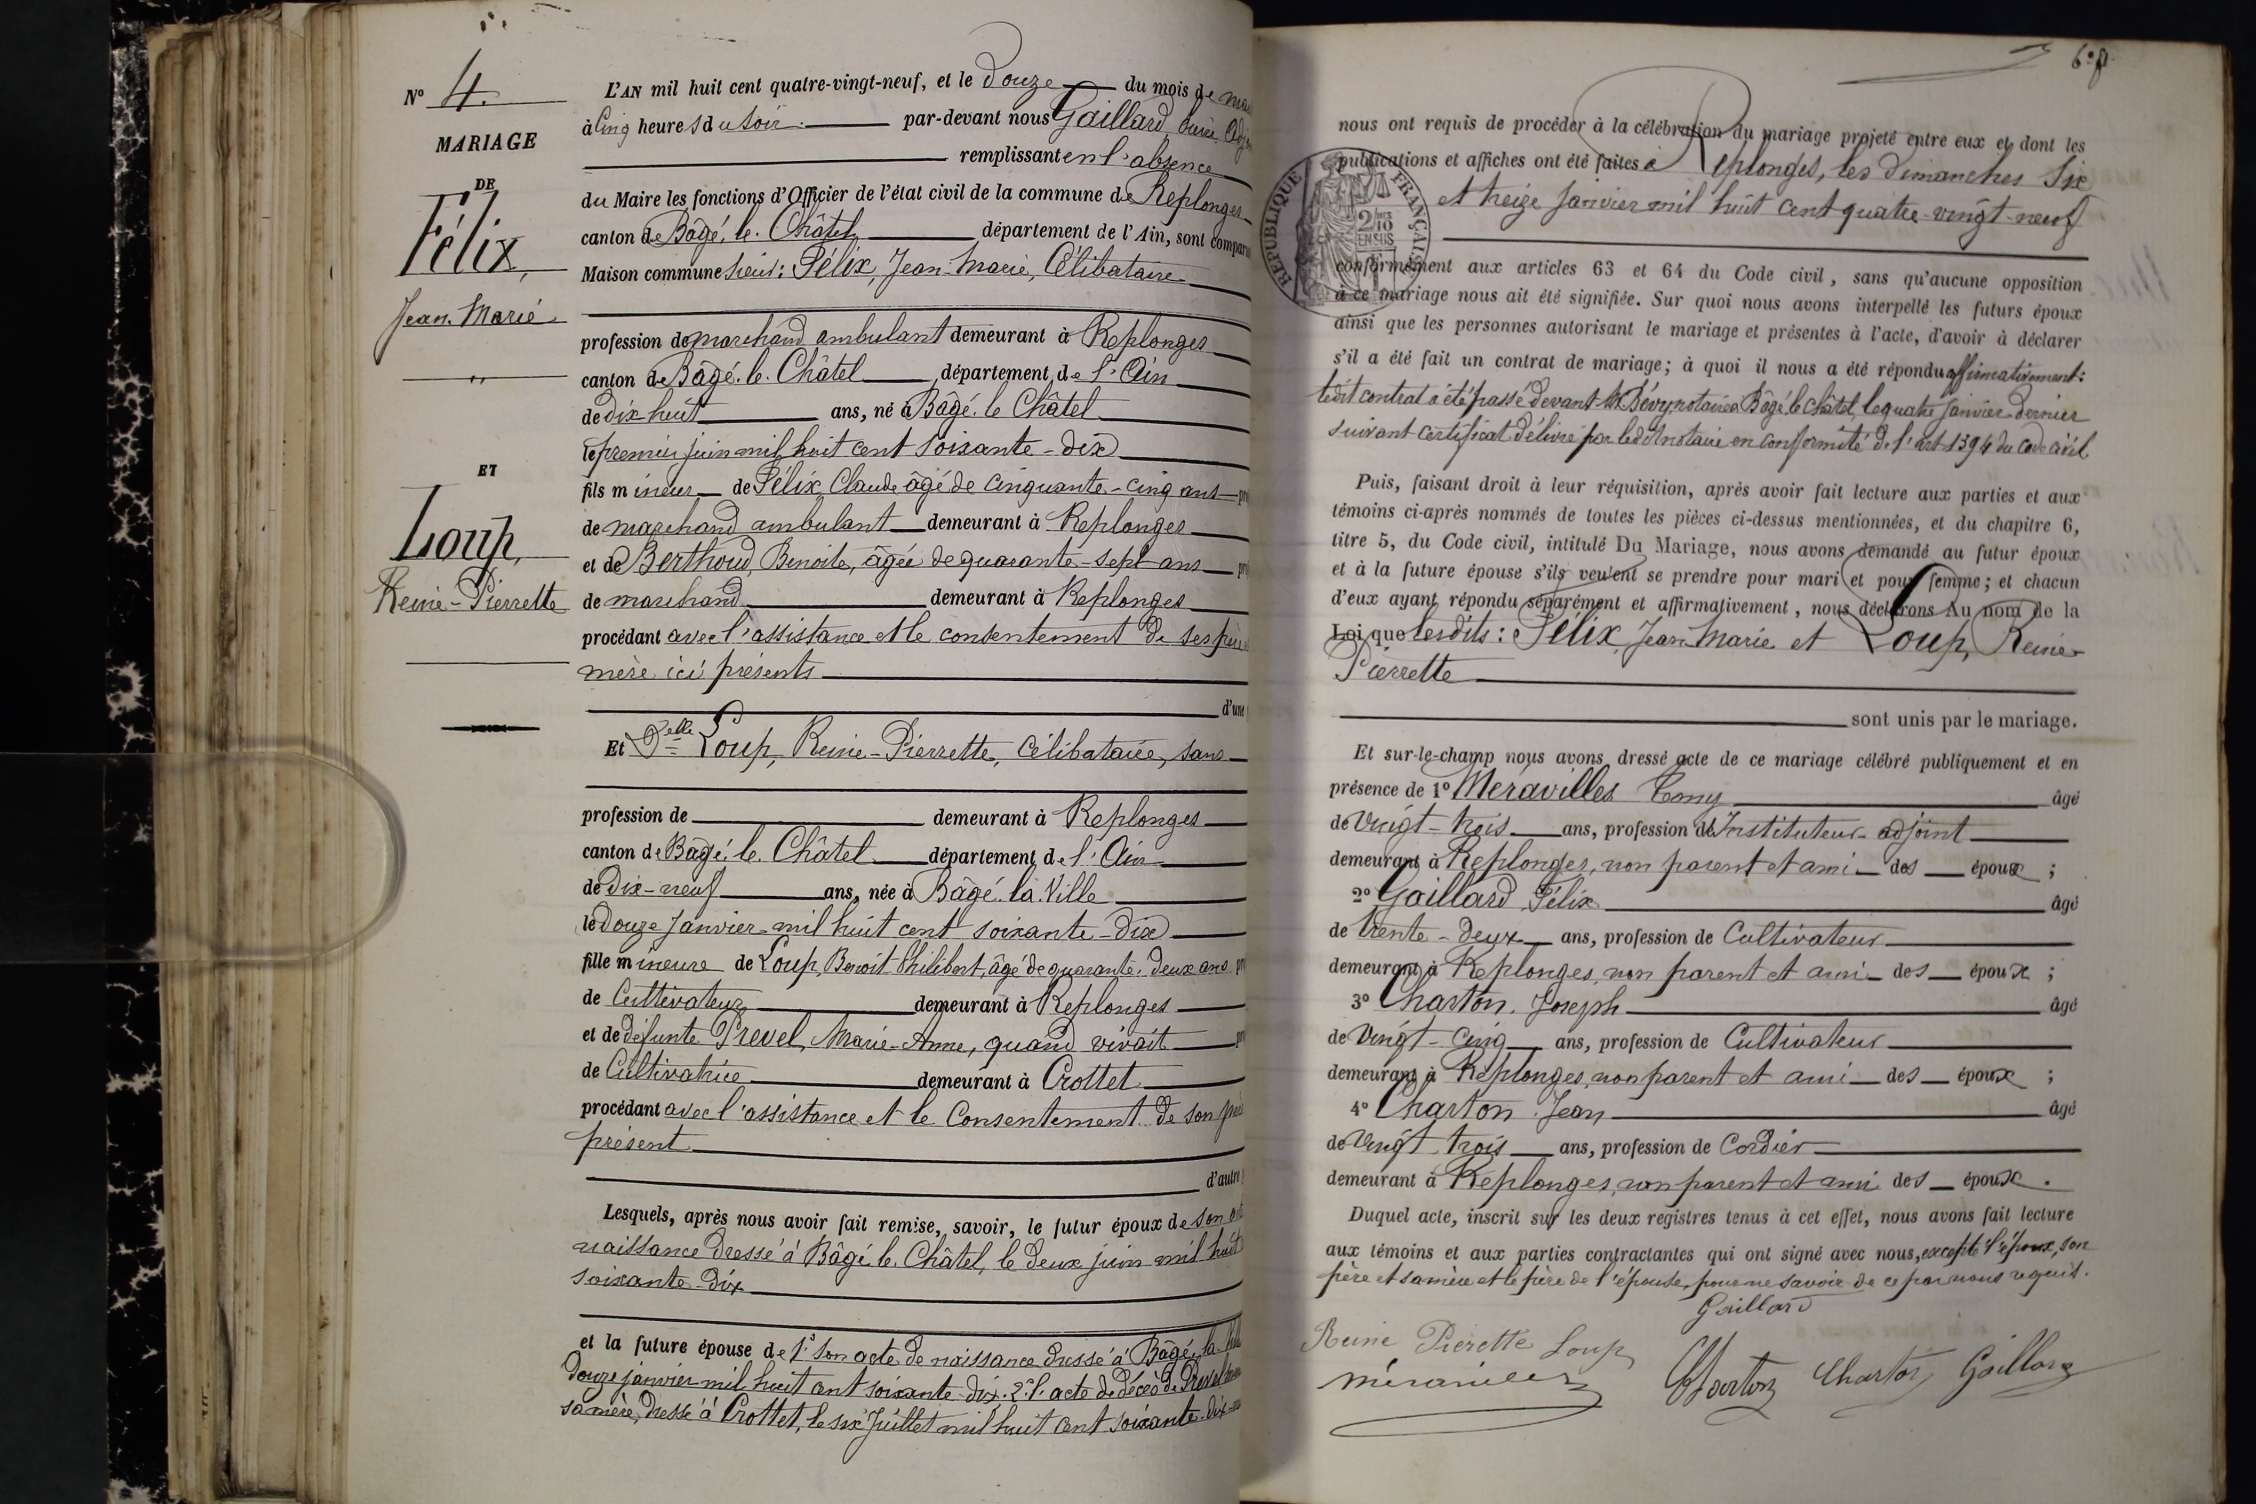 N° 4.
MARIAGE
DE
Félix,
Jean-Marie
"
ET
Loup,
Reine-Pierrette
L'AN mil huit cent quatre-vingt-neuf, et le douze du mois de
à Cinq heures du soir par-devant nous Gaillard,
remplissant en l'absence
du Maire les fonctions d'Officier de l'état civil de la commune de Replonges
canton de Bâgé-le-Châtel département de l'Ain, sont
Maison commune sieur: Félix, Jean-Marie, Célibataire
profession de marchand ambulant demeurant à Replonges
canton de Bâgé-le-Châtel département de l'Ain
de dix-huit ans, né à Bâgé-le-Châtel
le premier juin mil huit cent soixante-dix
fils mineur de Félix Claude âgé de cinquante-cinq ans
de marchand ambulant demeurant à Replonges
et de Berthoud, Benoite, âgée de quarante-sept ans
de marchand demeurant à Replonges
procédant avec l'assistance et le consentement de ses père
mère ici présents
d'une
Et Delle Loup, Reine-Pierrette, célibataire, sans
profession de demeurant à Replonges
canton de Bâgé-le-Châtel département de l'Ain
de Dix-neuf ans, née à Bâgé-la-Ville
le douze Janvier mil huit cent soixante-dix
fille mineure de Loup, Benoit Philibert, âgé de quarante-deux ans
de Cultivateur demeurant à Replonges
et de défunte Prevel, Marie-Anne, quand vivait
de Cultivatrice demeurant à Crottet
procédant avec l'assistance et le Consentement de son père
présent
d'autre
Lesquels, après nous avoir fait remise, savoir, le futur époux de son
naissance dressé à Bâgé-le-Châtel, le deux juin mil huit
soixante-dix
et la future épouse de 1° son acte de naissance dressé à Bâgé-la-
douze janvier mil huit cent soixante-dix. 2° l'acte de décès de Prevel
sa mère, dressé à Crottet, le six Juillet mil huit cent soixante-dix-
nous ont requis de procéder à la célébration du mariage projeté entre eux et dont les
publications et affiches ont été faites à Replonges, les dimanches Six
et treize Janvier mil huit cent quatre-vingt-neuf
REPUBLIQUE FRANÇAISE
2/10 EN SUS
conformément aux articles 63 et 64 du Code civil, sans qu'aucune opposition
à ce mariage nous ait été signifiée. Sur quoi nous avons interpellé les futurs époux
ainsi que les personnes autorisant le mariage et présentes à l'acte, d'avoir à déclarer
s'il a été fait un contrat de mariage; à quoi il nous a été répondu affirmativement:
ledit contrat a été passé devant Me Dévy notaire à Bâgé-le-Châtel, le quatre Janvier dernier
suivant certificat délivré par ledit notaire en conformité de l'art. 1394 du code civil
Puis, faisant droit à leur réquisition, après avoir fait lecture aux parties et aux
témoins ci-après nommés de toutes les pièces ci-dessus mentionnées, et du chapitre 6,
titre 5, du Code civil, intitulé Du Mariage, nous avons demandé au futur époux
et à la future épouse s'ils veulent se prendre pour mari et pour femme; et chacun
d'eux ayant répondu séparément et affirmativement, nous déclarons Au nom de la
Loi que lesdits: Félix, Jean-Marie et Loup, Reine-
Pierrette
sont unis par le mariage.
Et sur-le-champ nous avons dressé acte de ce mariage célébré publiquement et en
présence de 1° Méravilles Tony âgé
de Vingt-trois ans, profession d'Instituteur-adjoint
demeurant à Replonges, non parent et ami des époux;
2° Gaillard Félix âgé
de trente-deux ans, profession de Cultivateur
demeurant à Replonges, non parent et ami des époux;
3° Charton, Joseph âgé
de Vingt-cinq ans, profession de Cultivateur
demeurant à Replonges, non parent et ami des époux;
4° Charton Jean âgé
de Vingt-trois ans, profession de Cordier
demeurant à Replonges, non parent et ami des époux.
Duquel acte, inscrit sur les deux registres tenus à cet effet, nous avons fait lecture
aux témoins et aux parties contractantes qui ont signé avec nous, excepté l'époux, son
père et sa mère et le père de l'épouse, pour ne savoir de ce par nous requis.
Gaillard
Reine Pierette Loup
méravilles Charton Charton Gaillard